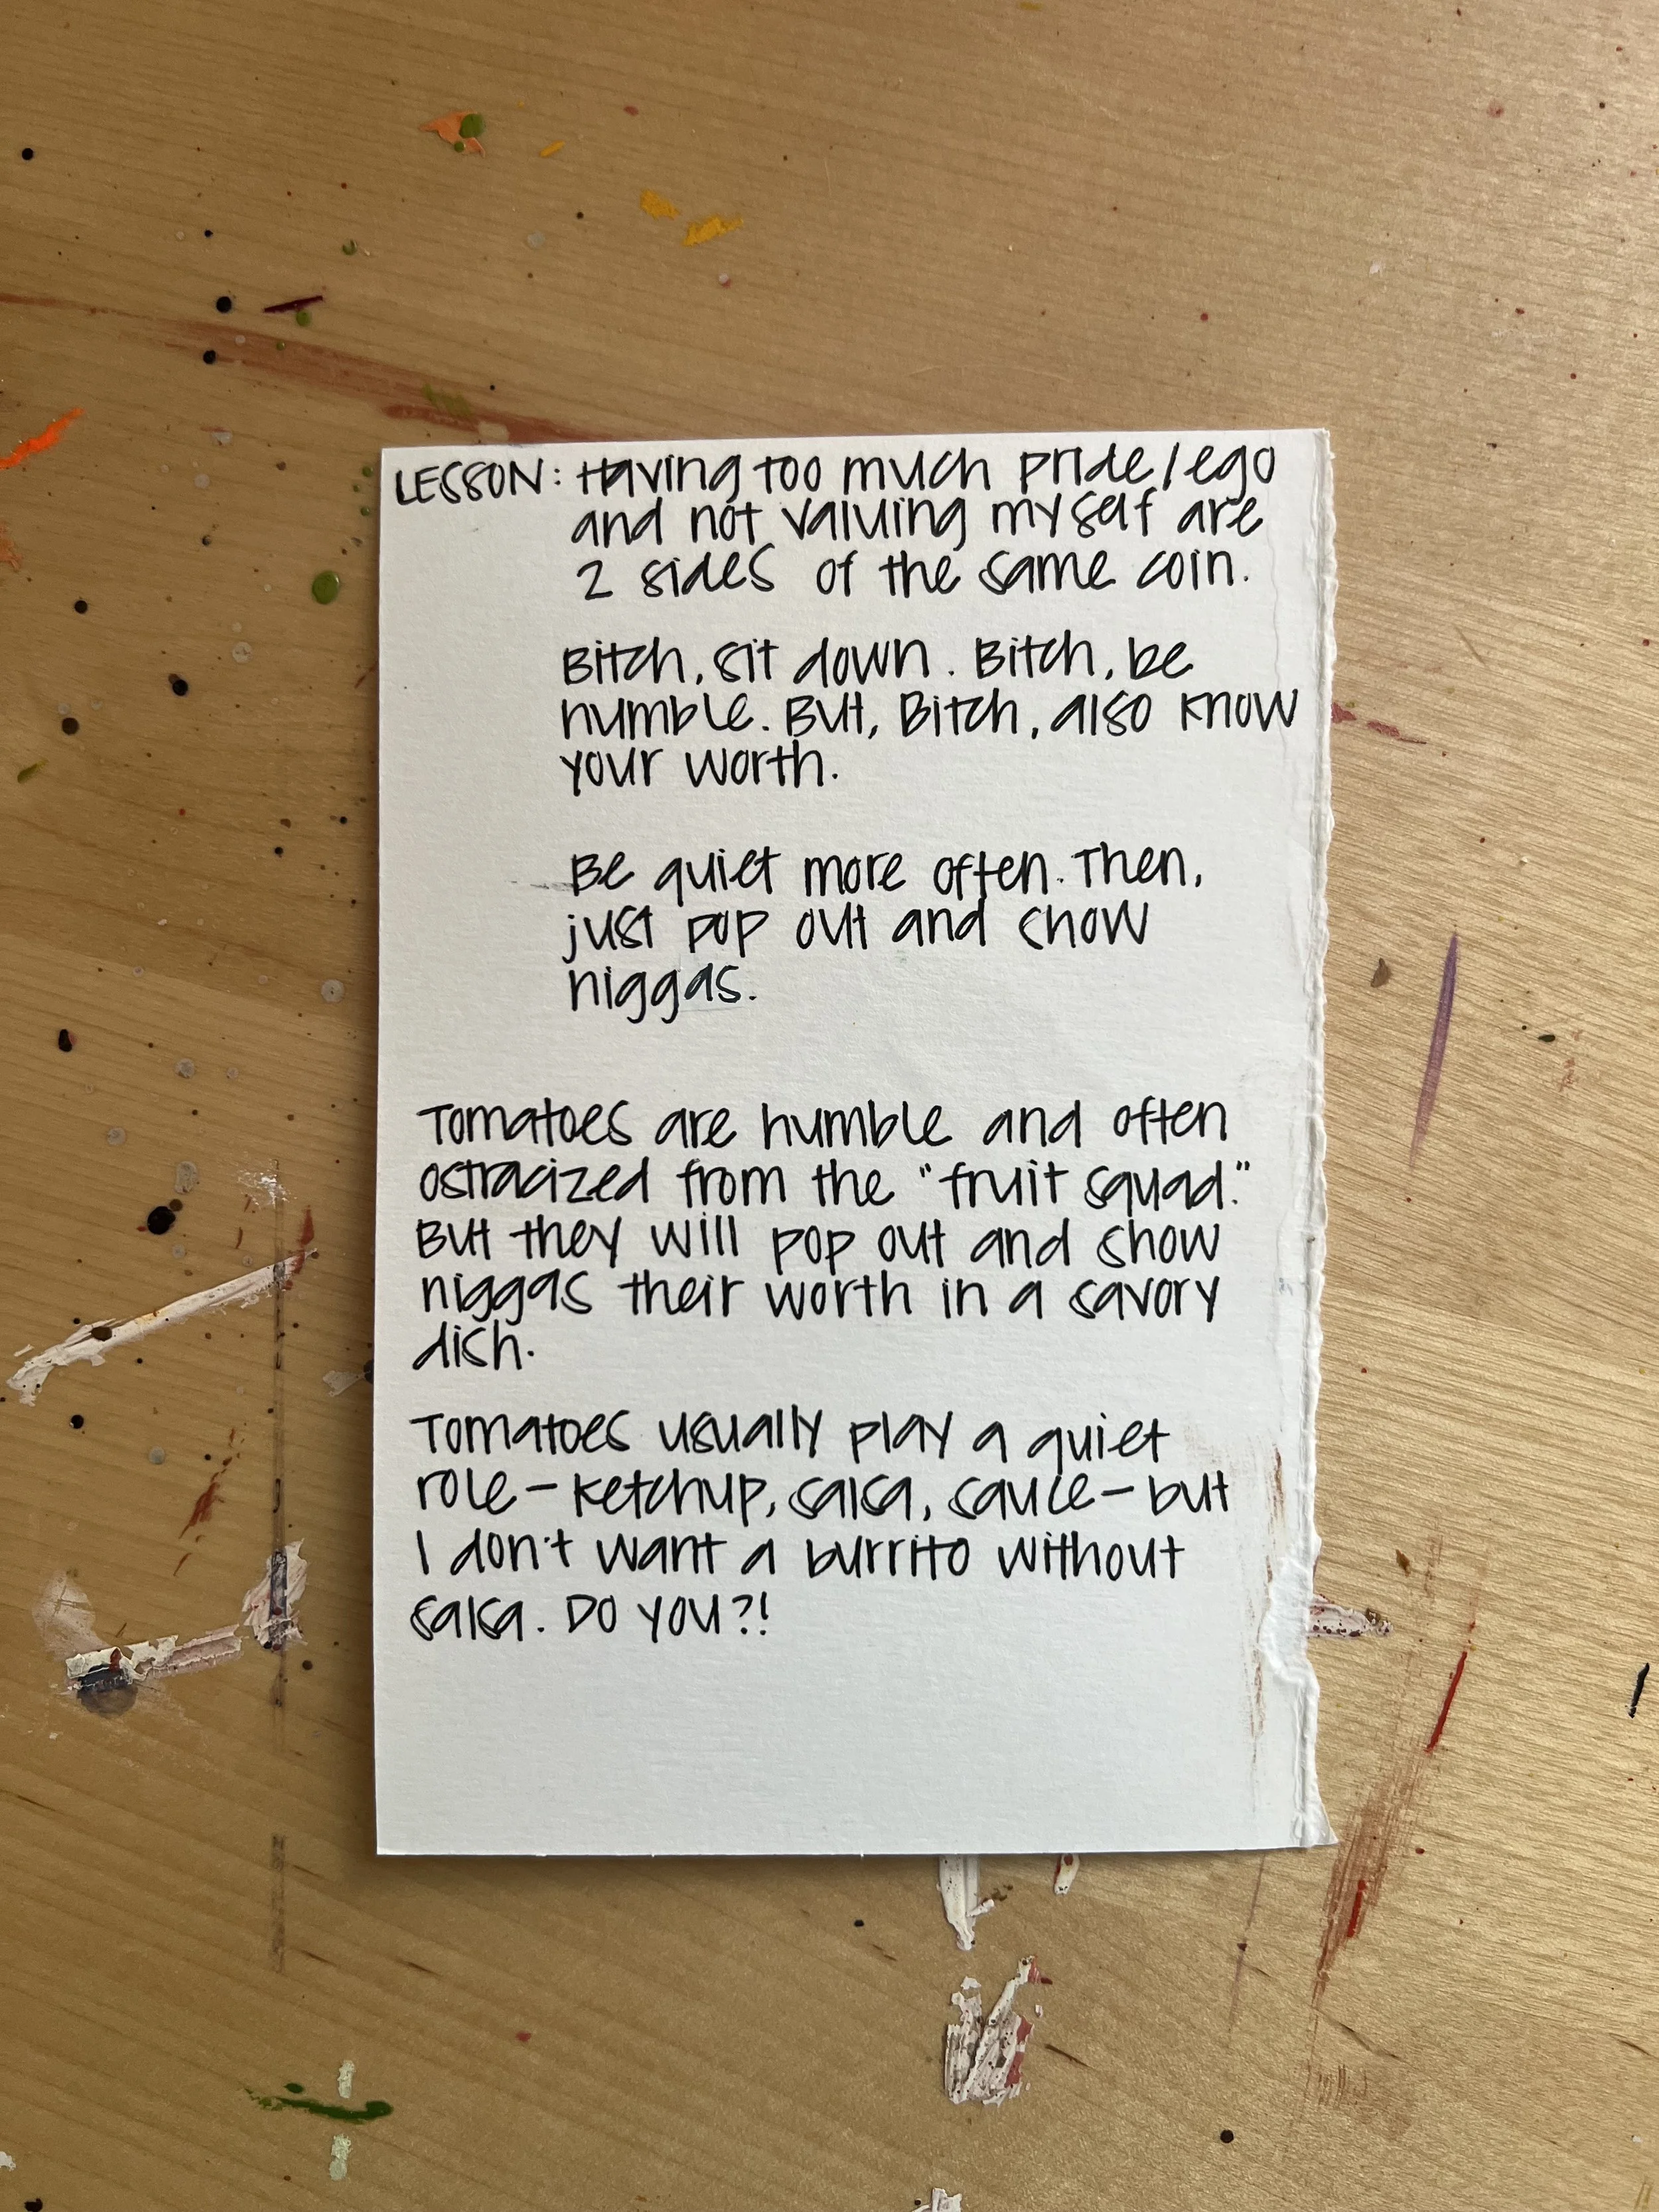 LESSON: Having too much pride/ego
and not valuing myself are
2 sides of the same coin.
Bitch, sit down. Bitch, be
humble. But, Bitch, also know
your worth.
Be quiet more often. Then,
just pop out and show
niggas.
Tomatoes are humble and often
ostracized from the "fruit squad."
But they will pop out and show
niggas their worth in a savory
dish.
Tomatoes usually play a quiet
role - ketchup, salsa, sauce - but
I don't want a burrito without
salsa. Do you?!